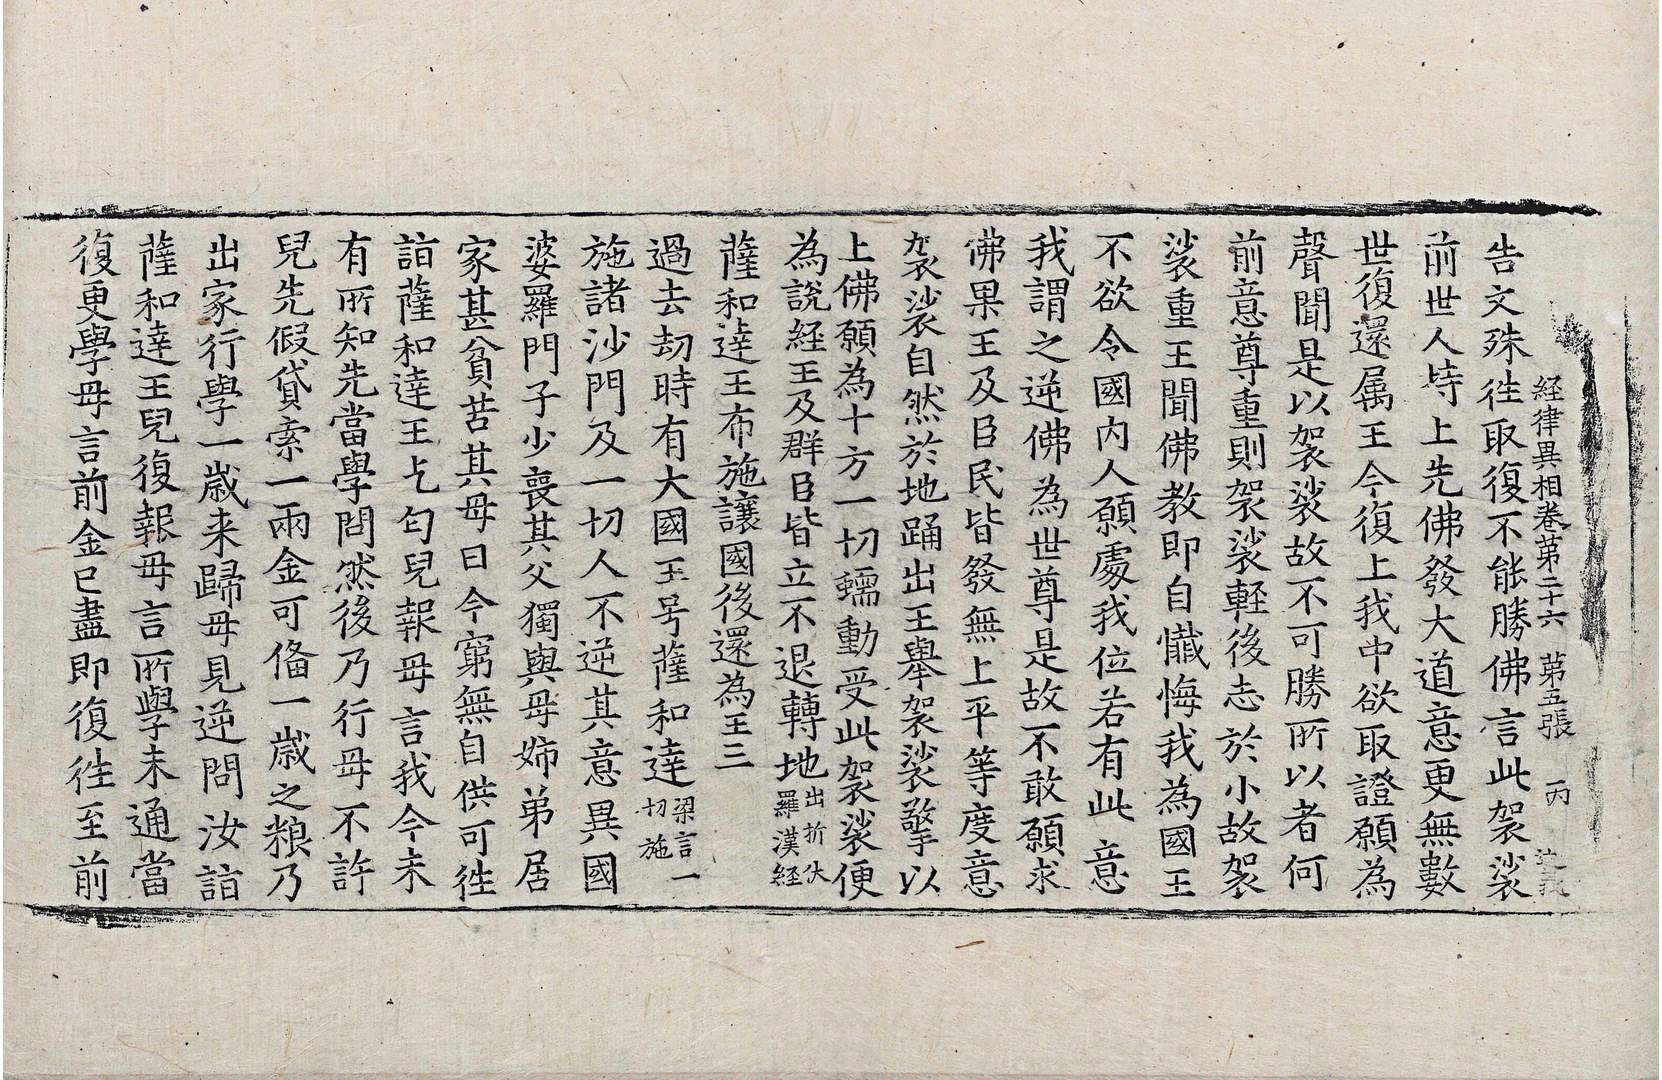 経律異相卷第二十六　第五張　丙
告文殊徃取復不能勝佛言此袈裟
前世人持上先佛發大道意更無數
世復還属王今復上我中欲取證願為
聲聞是以袈裟故不可勝所以者何
前意尊重則袈裟輕後志於小故袈
裟重王聞佛教即自懺悔我為國王
不欲令國內人願處我位若有此意
我謂之逆佛為世尊是故不敢願求
佛果王及臣民皆發無上平等度意
袈裟自然於地踊出王舉袈裟擎以
上佛願為十方一切蠕動受此袈裟便
為說経王及群臣皆立不退轉地出折伏羅漢経
薩和達王布施讓國後還為王三
過去劫時有大國王号薩和達梁言一切施
施諸沙門及一切人不逆其意異國
婆羅門子少喪其父獨與母姉弟居
家甚貧苦其母曰今窮無自供可徃
詣薩和達王乞匃兒報母言我今未
有所知先當學問然後乃行母不許
兒先假貸索一兩金可俻一歲之粮乃
出家行學一歲来歸母見逆問汝詣
薩和達王兒復報母言所學未通當
復更學母言前金已盡即復徃至前